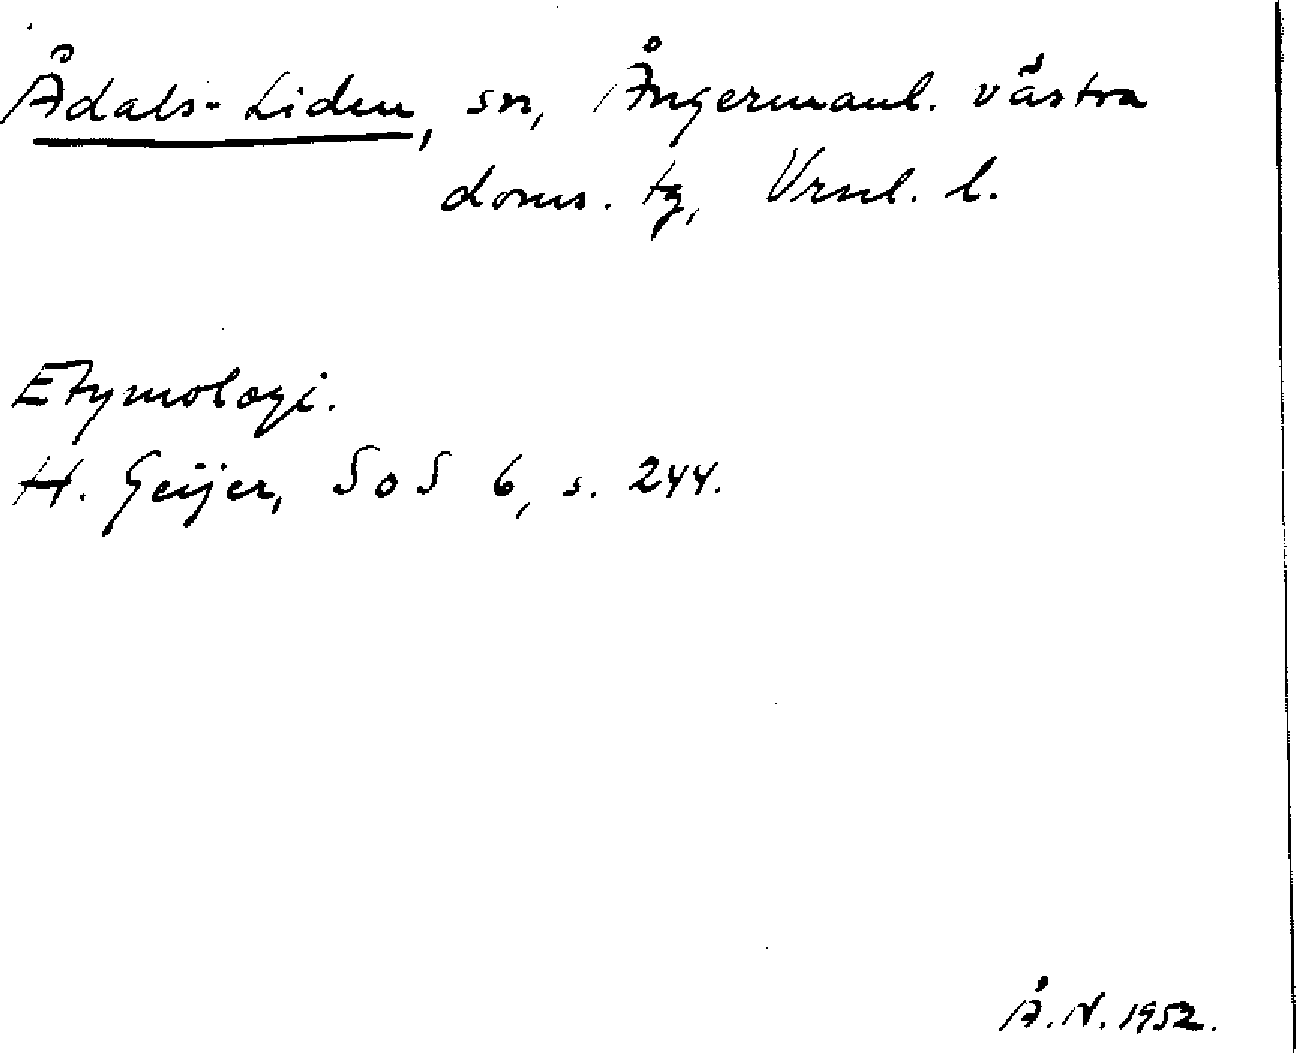 Ådals-Liden, sn, Ångermanl. västra
doms. tg, Vrnl. l.
Etymologi.
H. Geijer, SoS 6, s. 244.
Å. N. 1952.